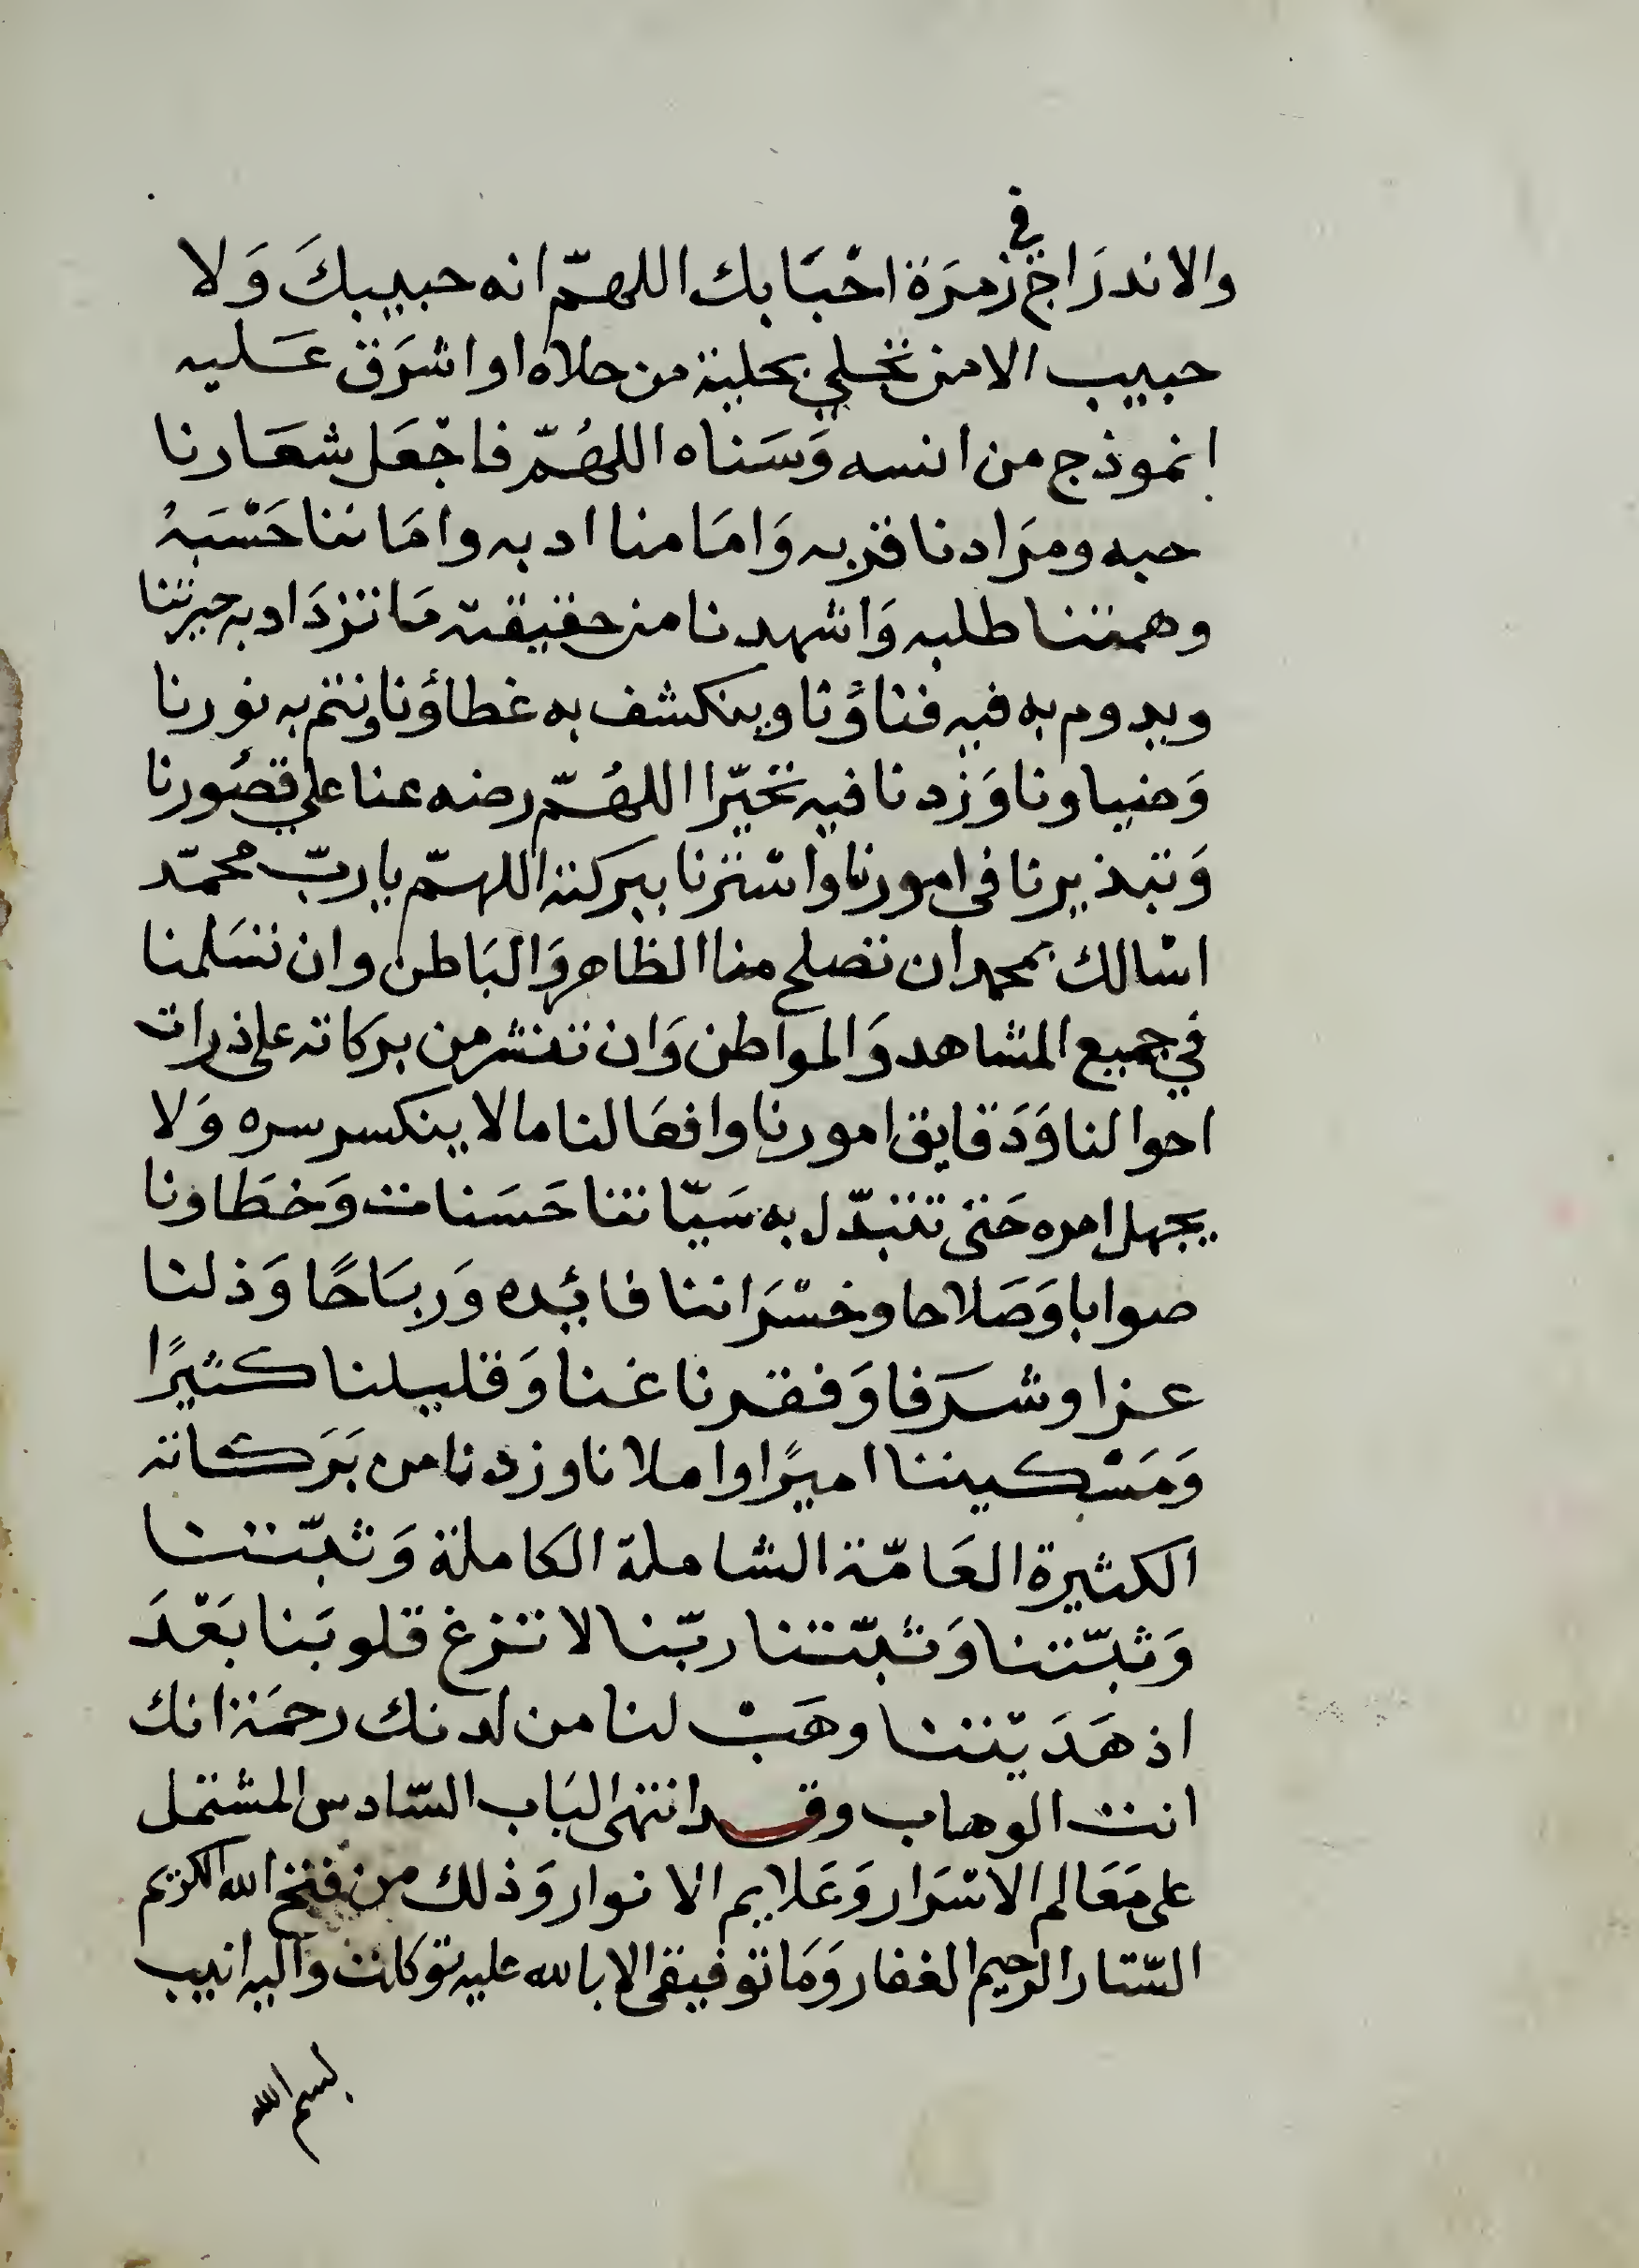 والاندرَاج في زمرَة احْبَابك اللهمّ انه حبيبكَ وَلا
حبيب الا من تحلي بحلية من حلاه او اشرَق عَليه
انموذج من انسه وَسَناه اللهُمّ فاجْعَل شعَارنا
حبه ومرَادنا قربه وَامَامنا ادبه وامَاننا حَسْبَهُ
وهمتنا طلبه وَاشهدنا من حقيقته مَا تزدَاد به حيرتنا
ويدوم به فيه فناؤنا وينكشف به غطاؤنا ونتم به نورنا
وَضياونا وَزدنا فيه تحيّرا اللهُمّ رضه عنا علي قصُورنا
وَتبذيرنا في امورنا واسْترنا ببركته اللهمّ يا ربّ محمّد
اسْالك بمحمد ان تصلح منا الظاهر وَالبَاطن وان تسَلمنا
في جميع المشاهد وَالمواطن وَان تنشر من بركاته على ذرات
احوالنا وَدَقايق امورنا وافعَالنا ما لا ينكسر سره وَلا
يجهل امره حَتى تتبدّل به سَيّاتنا حَسَنات وَخطَاونا
صوابا وَصَلاحا وخسْرَاننا فائده وَربَاحًا وَذلنا
عزا وشرَفا وَفقرنا غنا وَقليلنا كثيرًا
وَمَسْكيننا اميرًا واملانا وزدنا من بَرَكاته
الكثيرة العَامّة الشاملة الكاملة وَثبّتنا
وَثبّتنا وَثبّتنا ربّنا لا تزغ قلوبَنا بَعْدَ
اذ هَدَيْتنا وهَبْ لنا من لدنك رحمَة انك
انت الوهاب وقد انتهى البَاب السّادس المشتمل
على مَعَالم الاسْرَار وَعَلايم الانوار وَذلك من فتح الله الكريم
السّتار الرحيم الغفار وَمَا توفيقى الا بالله عليه توكلت وَاليه انيب
بسم الله